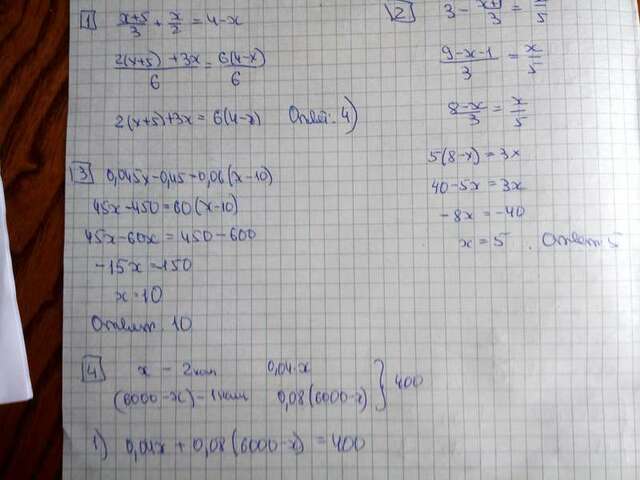 1 (x+5)/3 + x/2 = 4-x
2(x+5)/6 + 3x = 6(4-x)/6
2(x+5)+3x = 6(4-x) Ответ: 4)
2 3 - (x+1)/3 = x/5
(9-x-1)/3 = x/5
(8-x)/3 = x/5
5(8-x) = 3x
40-5x = 3x
-8x = -40
x = 5. Ответ 5
3 0,045x-0,45=0,06(x-10)
45x-450=60(x-10)
45x-60x=450-600
-15x=-150
x=10
Ответ 10
4 x - 2 0,04x
(6000-x) - 1 0,08(6000-x) } 400
1) 0,04x + 0,08(6000-x) = 400